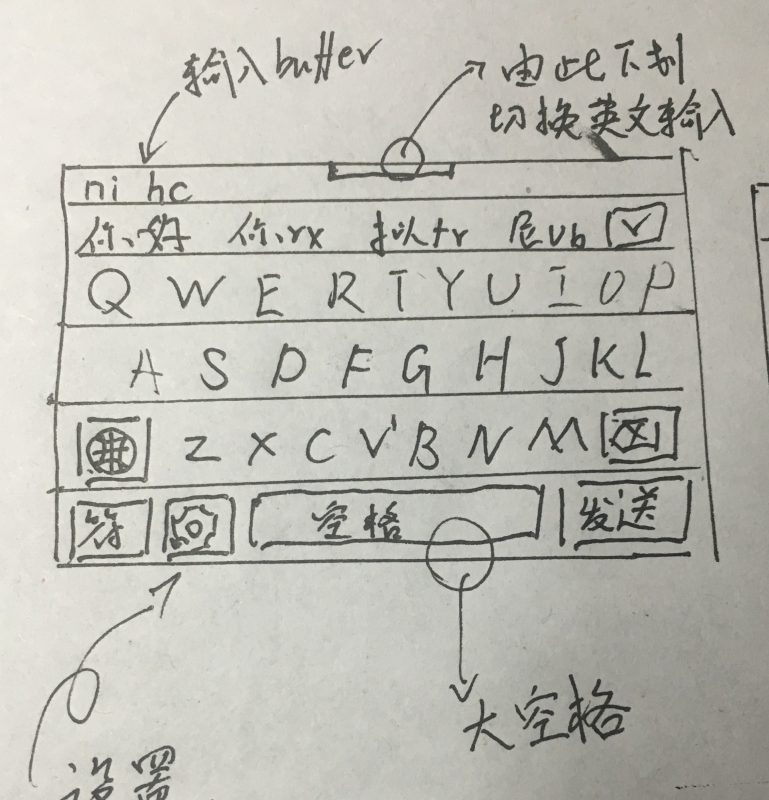 输入buffer
由此下划
切换英文输入
ni hc
你好 你rx 拟tr 尼ub
Q W E R T Y U I O P
A S D F G H J K L
Z X C V' B N M
符 空格 发送
大空格
设置